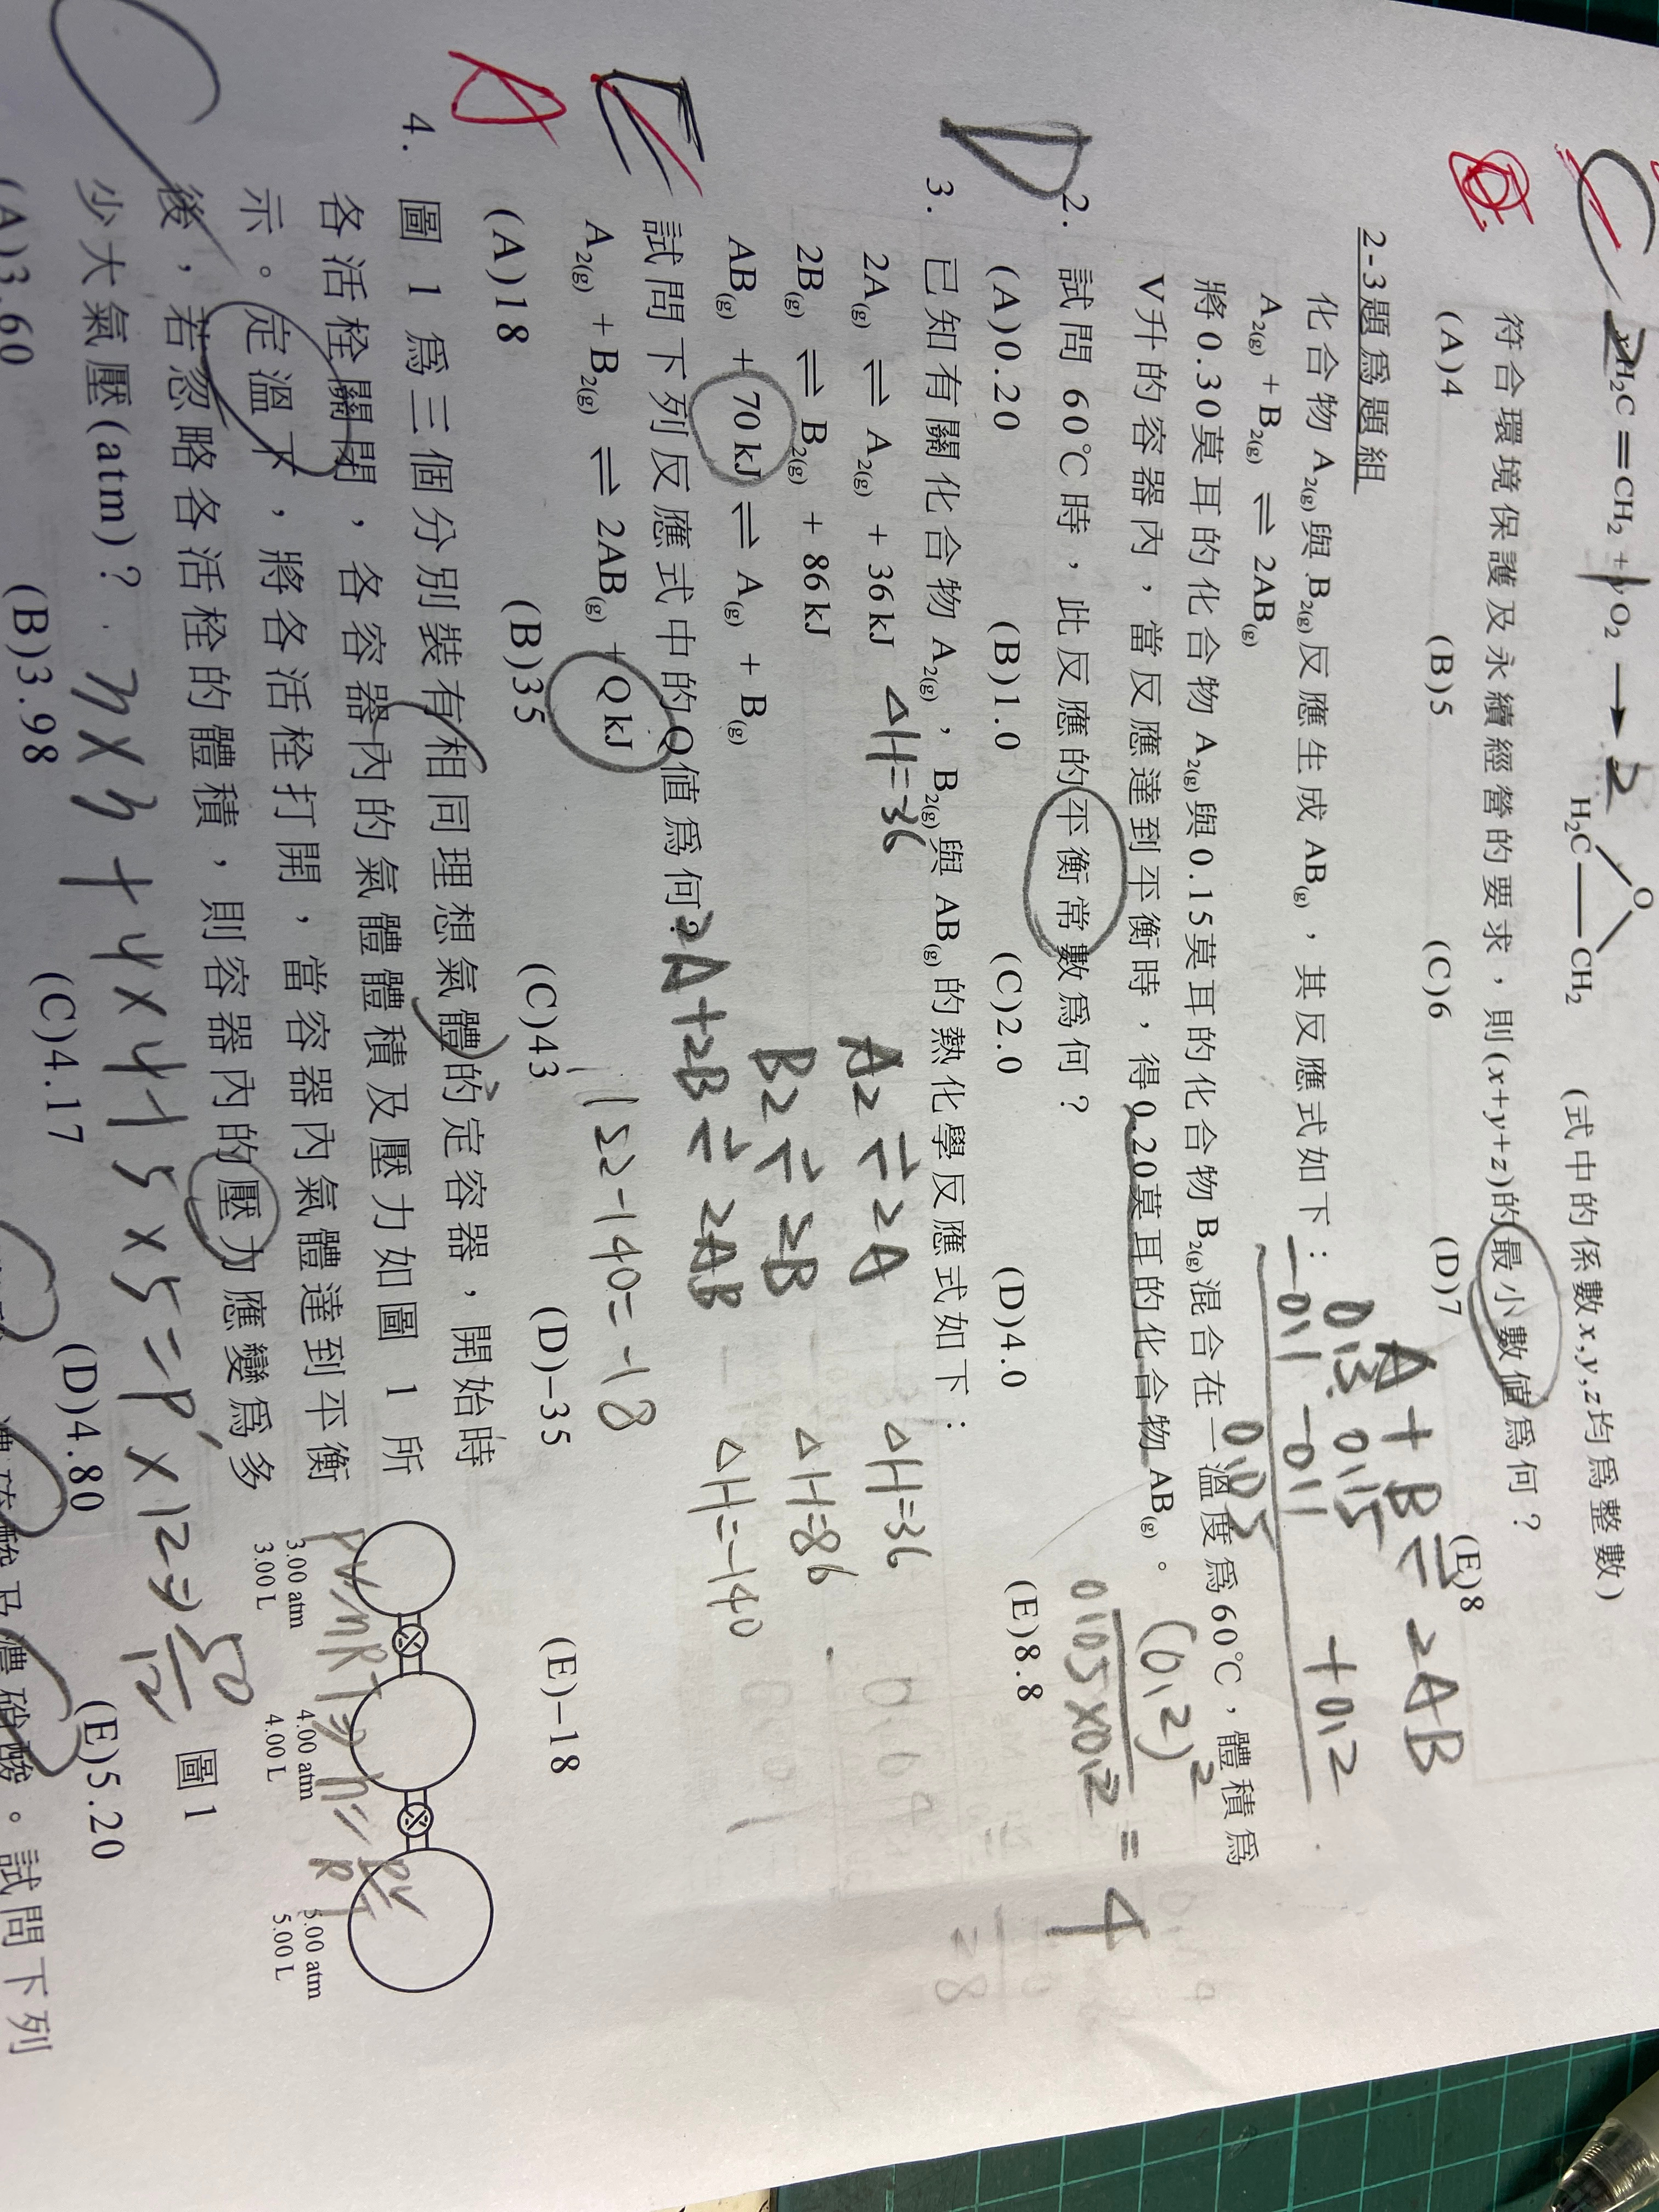 2H₂C=CH₂ + 1 O₂ → 2 H₂C—CH₂ O (式中的係數x,y,z均為整數)
符合環境保護及永續經營的要求,則(x+y+z)的最小數值為何?
(A)4 (B)5 (C)6 (D)7 (E)8
2-3題為題組
化合物 A₂(g)與 B₂(g)反應生成 AB(g),其反應式如下:
A₂(g) + B₂(g) ⇌ 2AB(g)
將0.30莫耳的化合物 A₂(g)與0.15莫耳的化合物 B₂(g)混合在一溫度為60℃,體積為
V升的容器內,當反應達到平衡時,得0.20莫耳的化合物 AB(g)。
A + B ⇌ 2AB
0.3 0.15
-0.1 -0.1 +0.2
0.05
D
2. 試問 60℃時,此反應的平衡常數為何?
(A)0.20 (B)1.0 (C)2.0 (D)4.0 (E)8.8
(0.2)²
0.05×0.2 = 4
3. 已知有關化合物 A₂(g),B₂(g)與 AB(g)的熱化學反應式如下:
2A(g) ⇌ A₂(g) + 36 kJ ΔH=-36
2B(g) ⇌ B₂(g) + 86 kJ
AB(g) + 70 kJ ⇌ A(g) + B(g)
A₂ ⇌ 2A ΔH=36
B₂ ⇌ 2B ΔH=86
2A+2B ⇌ 2AB ΔH=-140
試問下列反應式中的Q值為何?
A₂(g) + B₂(g) ⇌ 2AB(g) + Q kJ
122-140=-18
(A)18 (B)35 (C)43 (D)-35 (E)-18
E
A
4. 圖 1 為三個分別裝有相同理想氣體的定容器,開始時
各活栓關閉,各容器內的氣體體積及壓力如圖 1 所
示。定溫下,將各活栓打開,當容器內氣體達到平衡
後,若忽略各活栓的體積,則容器內的壓力應變為多
少大氣壓(atm)?
3×3+4×4+5×5=P'×12⇒ 50
12
3.00 atm
3.00 L
4.00 atm
4.00 L
5.00 atm
5.00 L
圖1
(A)3.60 (B)3.98 (C)4.17 (D)4.80 (E)5.20
酸及濃硝酸。試問下列